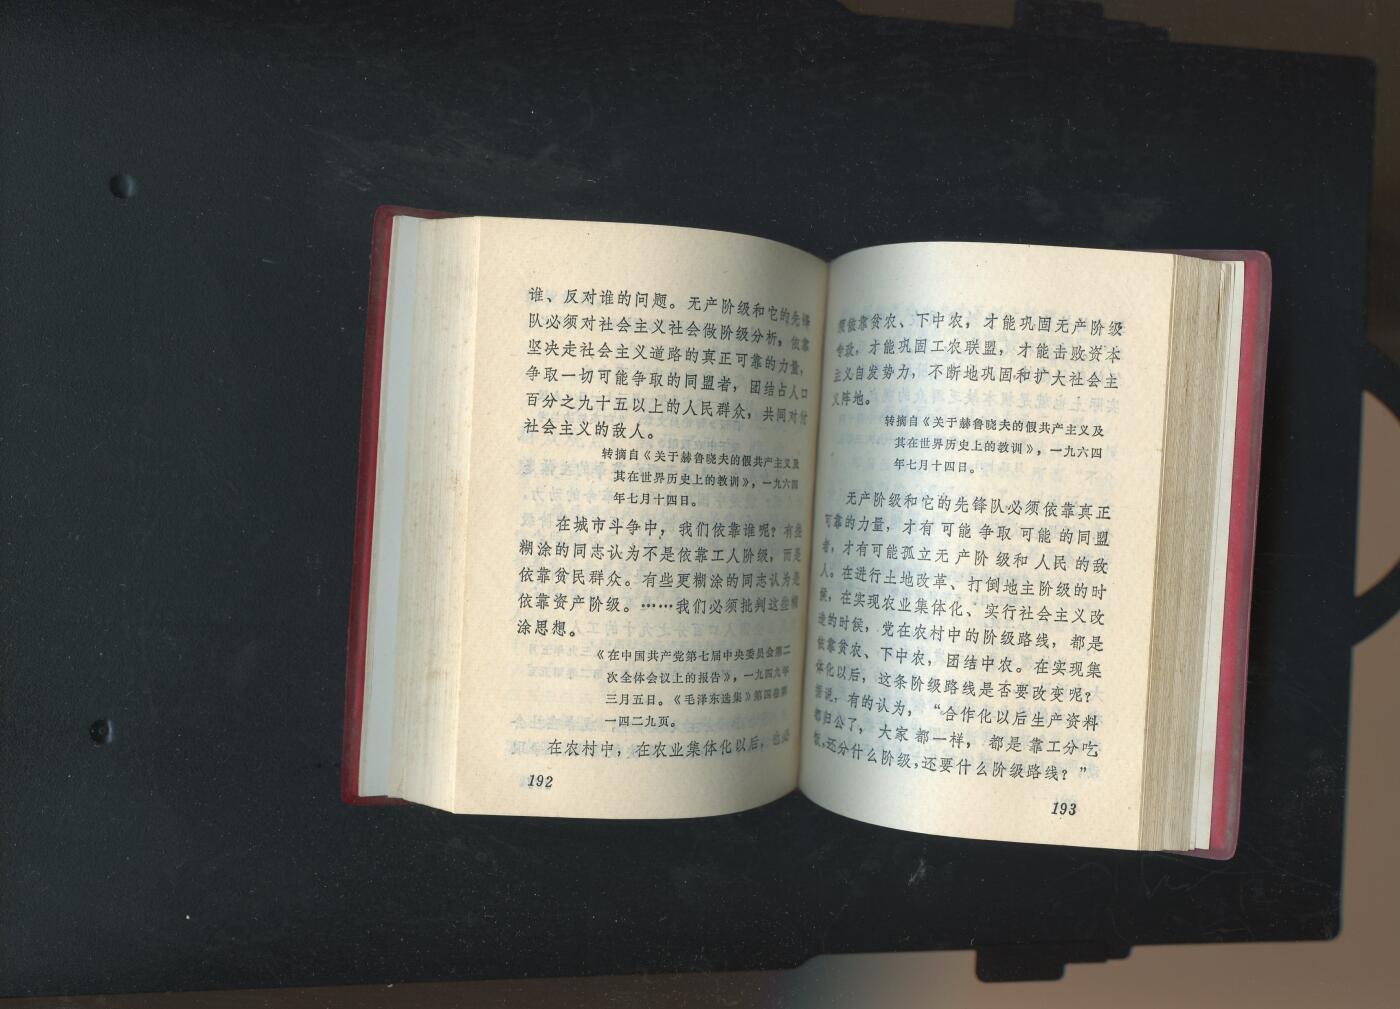 谁、反对谁的问题。无产阶级和它的先锋
队必须对社会主义社会做阶级分析，依靠
坚决走社会主义道路的真正可靠的力量，
争取一切可能争取的同盟者，团结占人口
百分之九十五以上的人民群众，共同对付
社会主义的敌人。
转摘自《关于赫鲁晓夫的假共产主义及
其在世界历史上的教训》，一九六四
年七月十四日。
在城市斗争中，我们依靠谁呢？有些
糊涂的同志认为不是依靠工人阶级，而是
依靠贫民群众。有些更糊涂的同志认为是
依靠资产阶级。……我们必须批判这些糊
涂思想。
《在中国共产党第七届中央委员会第二
次全体会议上的报告》，一九四九年
三月五日。《毛泽东选集》第四卷第
一四二九页。
在农村中，在农业集体化以后，也必
192
须依靠贫农、下中农，才能巩固无产阶级
专政，才能巩固工农联盟，才能击败资本
主义自发势力，不断地巩固和扩大社会主
义阵地。
转摘自《关于赫鲁晓夫的假共产主义及
其在世界历史上的教训》，一九六四
年七月十四日。
无产阶级和它的先锋队必须依靠真正
可靠的力量，才有可能争取可能的同盟
者，才有可能孤立无产阶级和人民的敌
人。在进行土地改革、打倒地主阶级的时
候，在实现农业集体化、实行社会主义改
造的时侯，党在农村中的阶级路线，都是
依靠贫农、下中农，团结中农。在实现集
体化以后，这条阶级路线是否要改变呢？
据说，有的认为，“合作化以后生产资料
都归公了，大家都一样，都是靠工分吃
饭，还分什么阶级，还要什么阶级路线？”
193